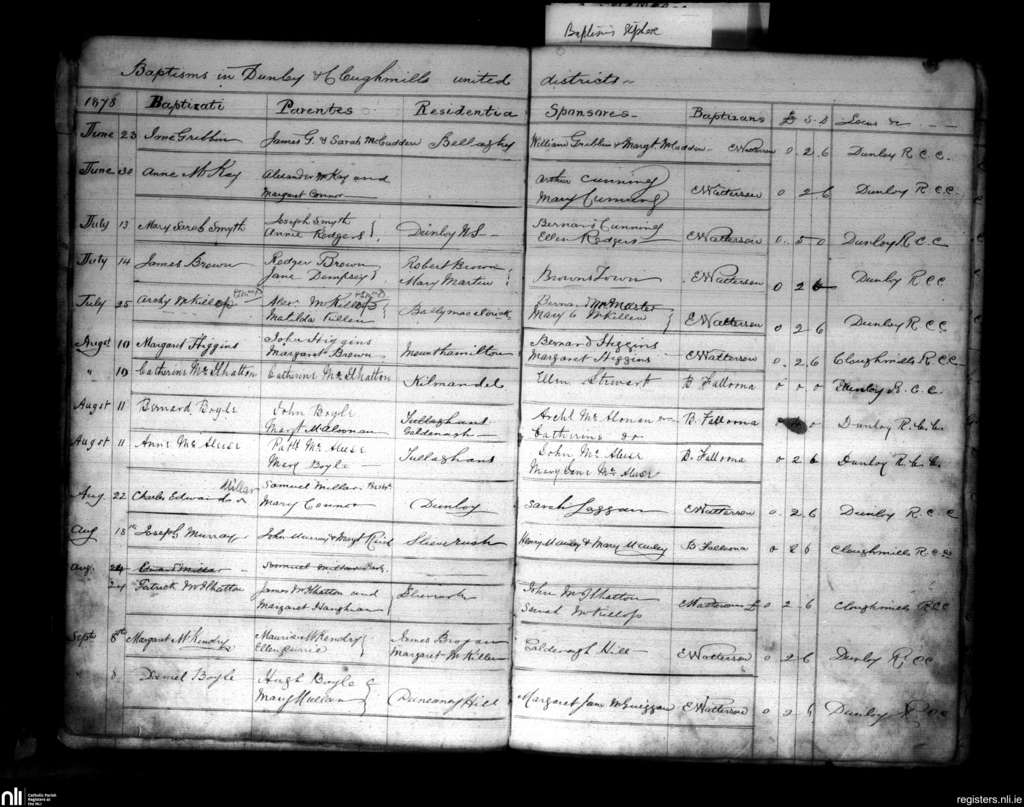 Baptisms
Baptisms in Dunloy & Cloughmills united districts
1878 Baptizati Parentes Residentia Sponsores Baptizans £ S D Locus &c
June 23 James G. & Sarah McCudden Bellaghy William Gribbin & Margt McCudden E Watterson 0 2 6 Dunloy R C C.
June 30 Anne McKay Alexander McKay and Arthur Cunning E Watterson 0 2 6 Dunloy R.C.C.
Margaret Connor Mary Cunning
July 13 Mary Sarah Smyth Joseph Smyth Dunloy N S Bernard Cunning E Watterson 0 5 0 Dunloy R C C
Annie Rodgers Ellen Rodgers
July 14 James Brown Rodger Brown Robert Brown Browns Town E Watterson 0 2 Dunloy R C C
Jane Dempsey Mary Martin
July 25 Archy McKillop McKillop E Watterson 0 2 6 Dunloy R C C
Matilda Mary
Augst 10 Margaret Higgins John Higgins Mounthamilton Bernard Higgins E Watterson 0 2 6 Cloughmills R C C
Margaret Brown Margaret Higgins
" 10 Catherine McIlhatton Catherine McIlhatton Kilmandel Ellen Stewart B Falloona 0 0 0 Dunloy R. C. C.
Augst 11 Bernard Boyle John Boyle Tullaghans Archd B. Falloona Dunloy R. C. C.
Margt Galdenagh Catherine do
Augst 11 Anne McAleese Patk McAleese Tullaghans John McAleese B. Falloona 0 2 6 Dunloy R. C. C.
Mary Boyle Mary Jane McAleese
Aug 22 Charles Edward Millar Samuel Millar Dunloy Sarah Laggan E Watterson 0 2 6 Dunloy R C C
Mary Connor
Aug 18th Joseph Murray John Murray & Margt Reid Slieverush Henry Mauley & Mary Mauley B Falloona 0 2 6 Cloughmills R.C.C.
Aug. 24 Edward Millar Samuel Millar
24 Patrick McIlhatton James McIlhatton and John McIlhatton E Watterson £ 0 2 6 Cloughmills R C C
Margaret Haughian Sarah McKillop
Septr 8th Margaret McKendry McKendry James Brogan Galdenagh Hill E Watterson 0 2 6 Dunloy R. C C
Ellen Currie Margaret McKillen
" 8 Daniel Boyle Hugh Boyle Duneanny Hill Margaret Jane McGuiggan E Watterson 0 2 6 Dunloy R C C
Mary
nli Catholic Parish
Registers at
the NLI
registers.nli.ie